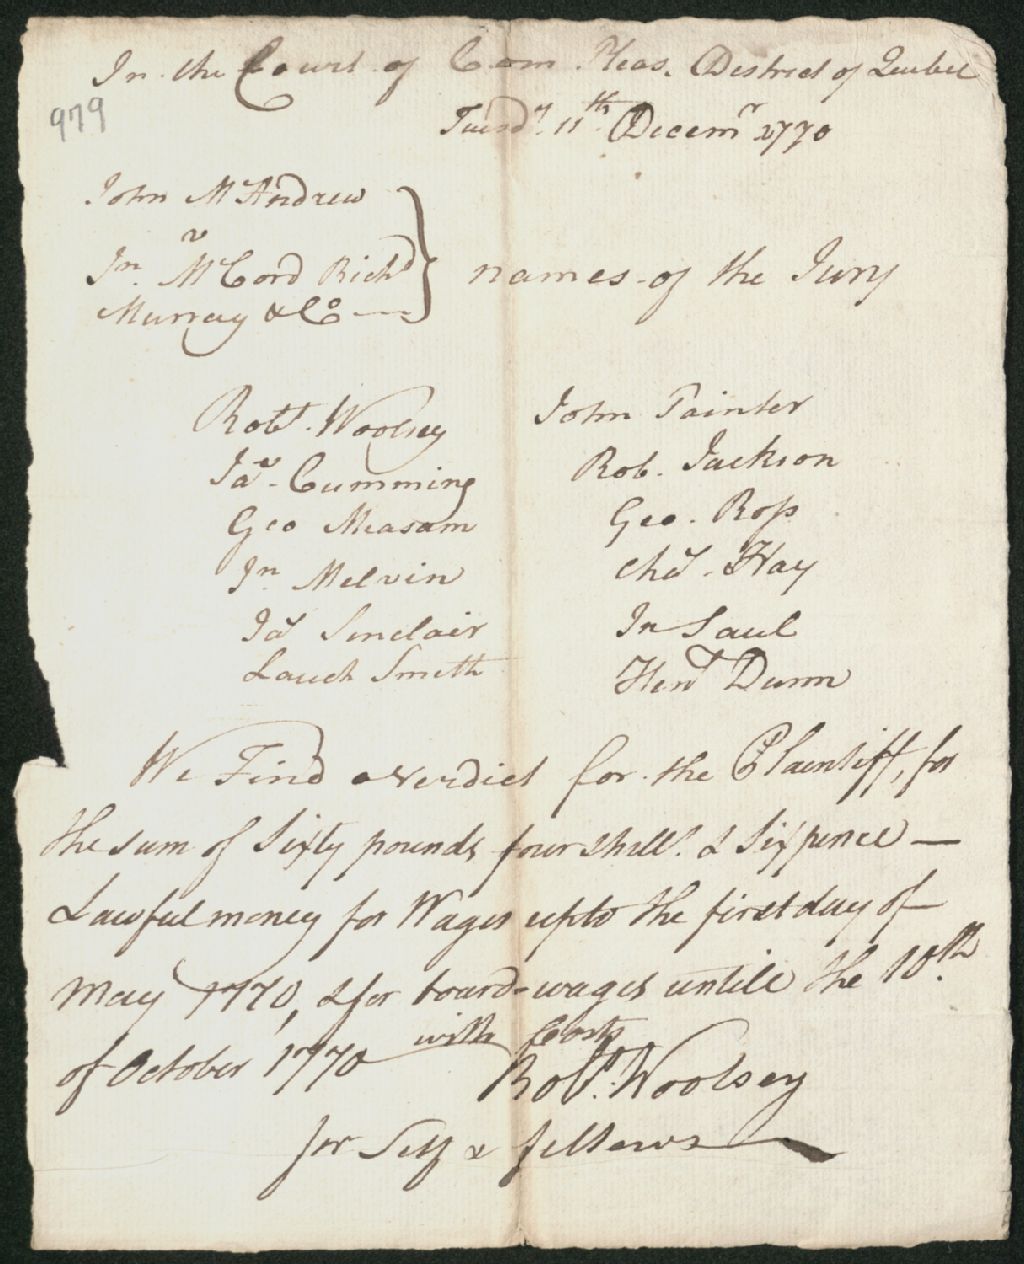 In the Court of Com Pleas. District of Quebec
979
Tuesdy. 11th. Decemr 1770
John McAndrew
v
Jn. McCord Richd
Murray & Co
names of the Jury
Robt. Woolsey
Jas. Cumming
Geo Measam
Jn Melvin
Jas Sinclair
Lauch Smith
John Painter
Rob. Jackson
Geo. Ross
Chas. Hay
Jn Saul
Heny Dunn
We Find a Verdict for the Plaintiff, for
the sum of Sixty pounds four shill. & Sixpence —
Lawful money for Wages upto the first day of
May 1770, & for board-wages untill the 10th.
of October 1770 with Costs
Robt. Woolsey
for Self & fellows